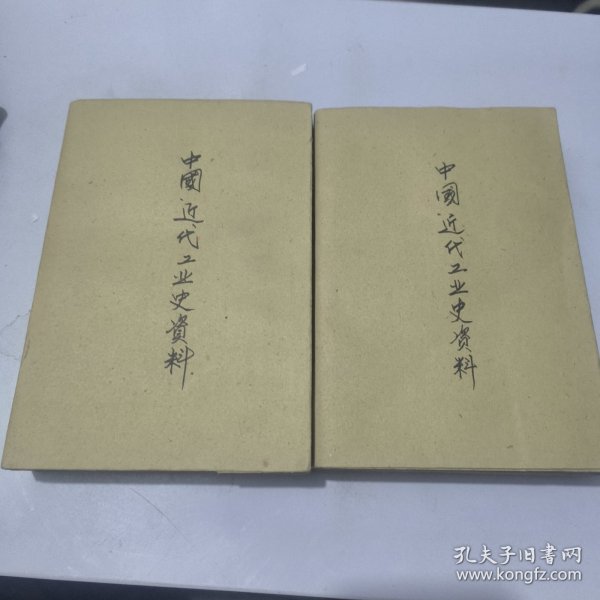 中國近代工业史資料
中國近代工业史资料
孔夫子旧书网
www.kongfz.com